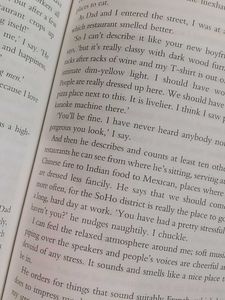 after a few
taurant crops up
ing itself!'
me', I say. 'He
and happiness,
ing men.'
because I love
s a high.
Dad
ices to eat.
As Dad and I entered the street, I was at
which restaurant smelled better.
'So I can't describe it like your new boyfr
'but it's really classy with dark wood furn
racks after racks of wine and my T-shirt is out o
intimate dim-yellow light. I should have wo
People are really dressed up here. We should have
place next to this. It is livelier. I think I saw p
karaoke machine there.'
'You'll be fine. I have never heard anybody not
gorgeous you look,' I say.
And then he describes and counts at least ten othe
restaurants he can see from where he's sitting, serving a
Chinese fare to Indian food to Mexican, places where
are dressed less fancily. He says that we should come
more often, for the SoHo district is really the place to go
a long, hard day at work. 'You have had a pretty stressful
haven't you?' he nudges naughtily. I chuckle.
I can feel the relaxed atmosphere around me; soft music
piping over the speakers and people's voices are cheerful a
devoid of any stress. It sounds and smells like a nice place t
be in.
He orders for things that sound suitably French
does to impress